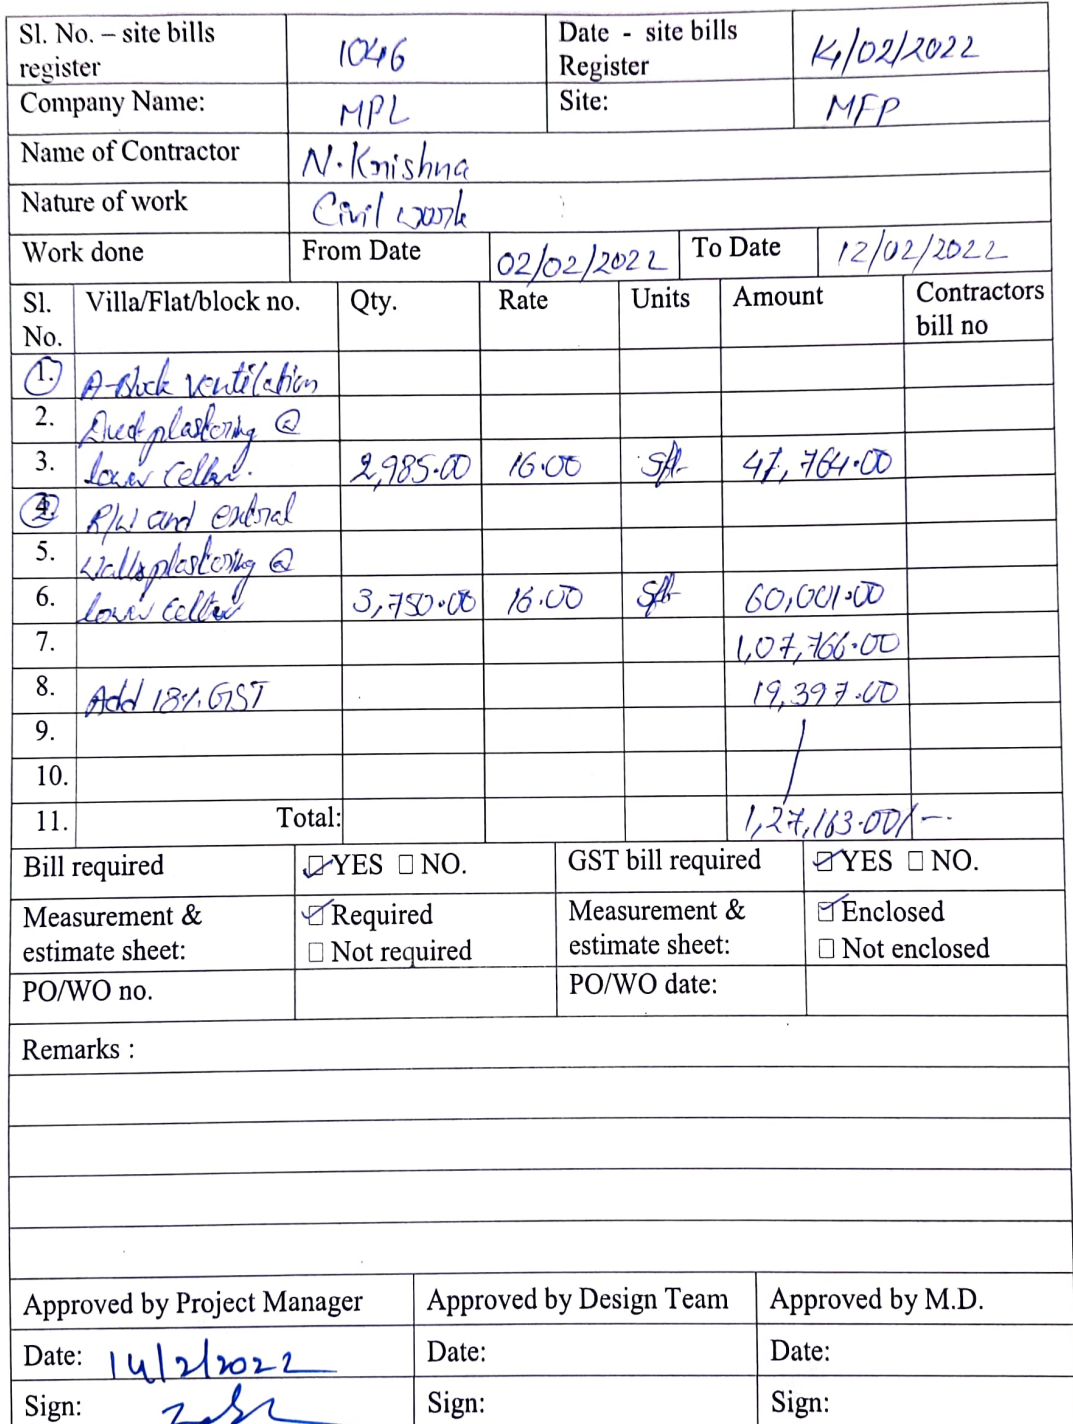 Sl. No. – site bills register 1046 Date - site bills Register 14/02/2022
Company Name: MPL Site: MFP
Name of Contractor N. Krishna
Nature of work Civil work
Work done From Date 02/02/2022 To Date 12/02/2022
Sl. No. Villa/Flat/block no. Qty. Rate Units Amount Contractors bill no
1. A-Block ventilation
2. Duct plastoring @
3. lower Cellar. 2,985.00 16.00 Sft 47,764.00
4. 2 R/W and extral
5. Walls plastoring @
6. lower Cellar 3,750.00 16.00 Sft 60,001.00
7. 1,07,766.00
8. Add 18% GST 19,397.00
9.
10.
11. Total: 1,27,163.00/-
Bill required YES NO. GST bill required YES NO.
Measurement & estimate sheet: Required Not required Measurement & estimate sheet: Enclosed Not enclosed
PO/WO no. PO/WO date:
Remarks :
Approved by Project Manager Approved by Design Team Approved by M.D.
Date: 14/2/2022 Date: Date:
Sign: Sign: Sign: